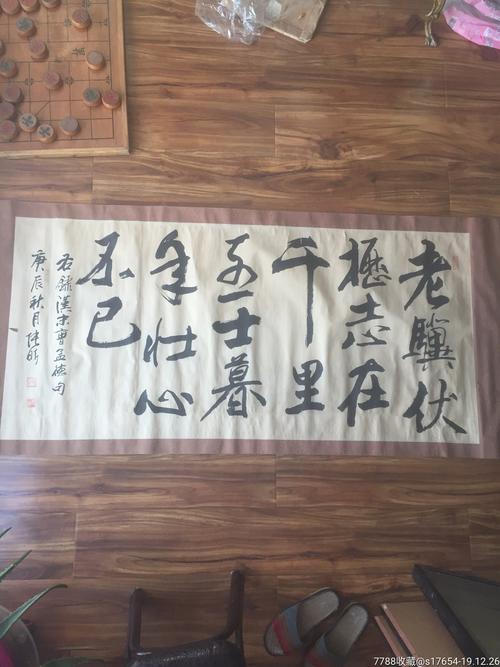 老驥伏
櫪志在
千里
烈士暮
年壮心
不已
右録漢末曹孟德句
庚辰秋月
7788收藏@s17654-19.12.26